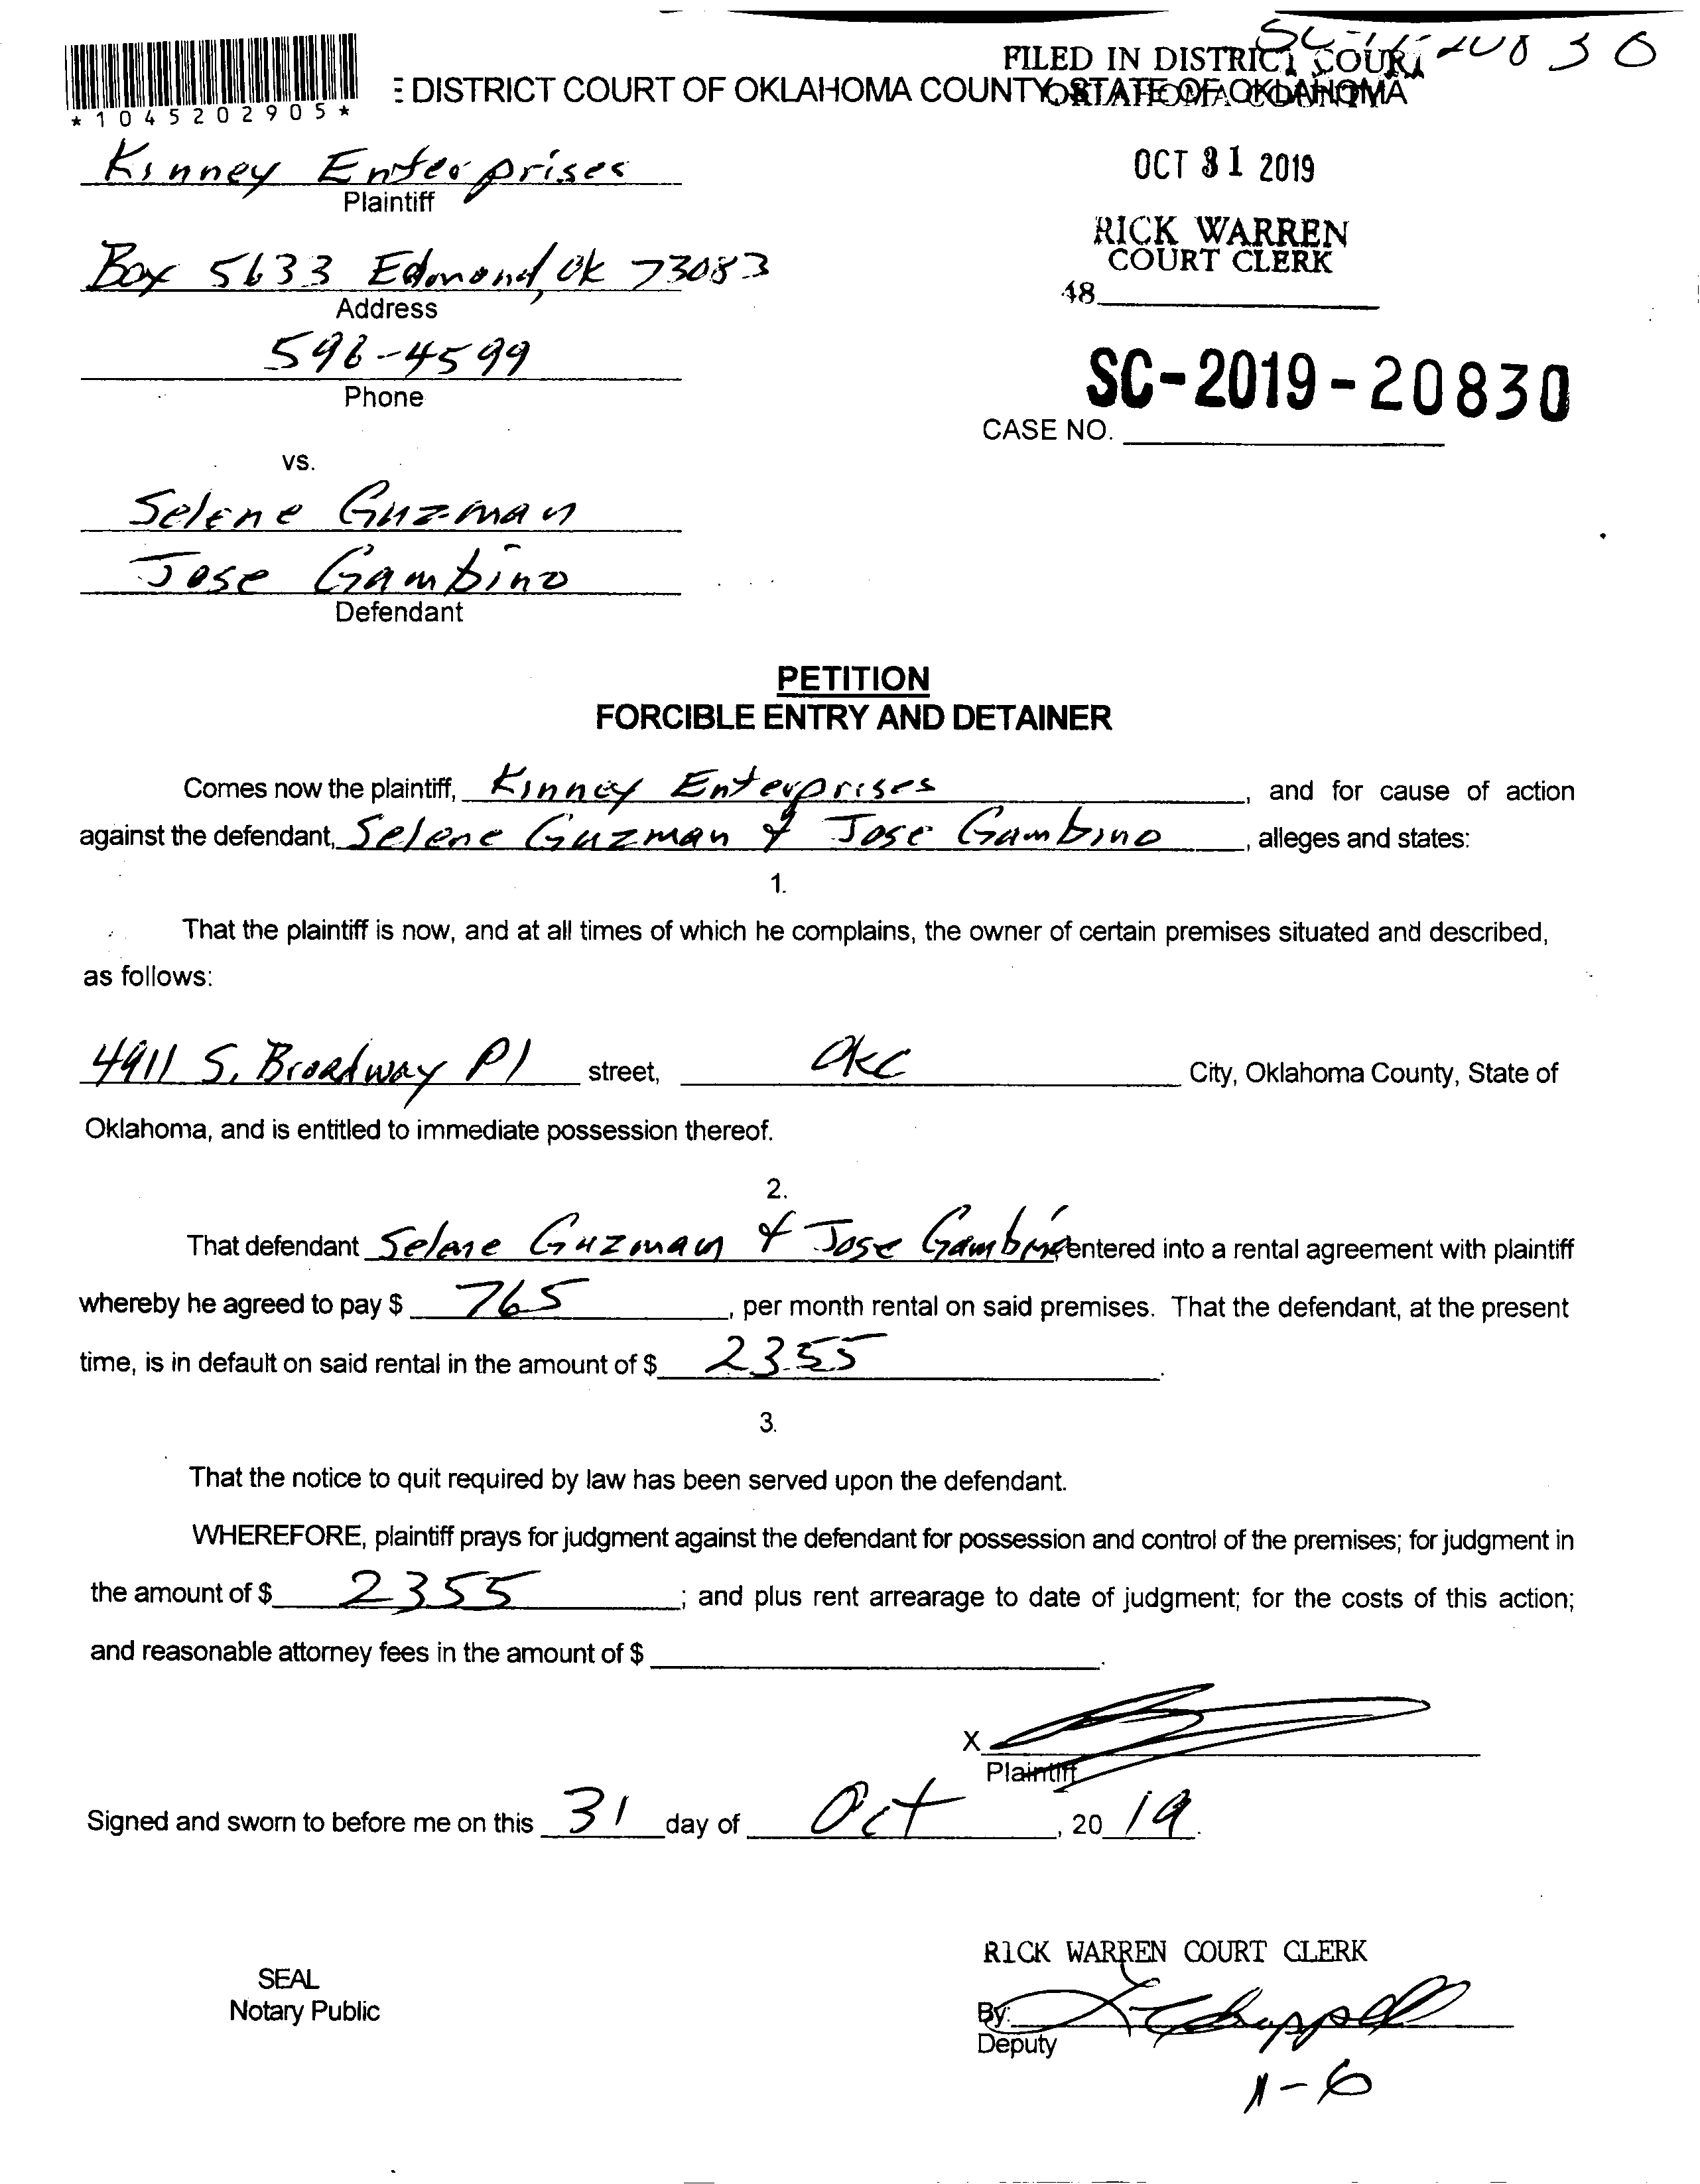 FILED IN DISTRICT COURT
DISTRICT COURT OF OKLAHOMA COUNTY, STATE OF OKLAHOMA
OKLAHOMA COUNTY
*1045202905*
Kinney Enterprises
Plaintiff
OCT 31 2019
RICK WARREN
COURT CLERK
48
Box 5633 Edmond, Ok 73083
Address
596-4599
Phone
SC-2019-20830
CASE NO.
vs.
Selene Guzman
Jose Gambino
Defendant
PETITION
FORCIBLE ENTRY AND DETAINER
Comes now the plaintiff, Kinney Enterprises, and for cause of action
against the defendant, Selene Guzman & Jose Gambino, alleges and states:
1.
That the plaintiff is now, and at all times of which he complains, the owner of certain premises situated and described,
as follows:
4911 S. Broadway Pl street, OKC City, Oklahoma County, State of
Oklahoma, and is entitled to immediate possession thereof.
2.
That defendant Selene Guzman & Jose Gambino entered into a rental agreement with plaintiff
whereby he agreed to pay $ 765, per month rental on said premises. That the defendant, at the present
time, is in default on said rental in the amount of $ 2355.
3.
That the notice to quit required by law has been served upon the defendant.
WHEREFORE, plaintiff prays for judgment against the defendant for possession and control of the premises; for judgment in
the amount of $ 2355; and plus rent arrearage to date of judgment; for the costs of this action;
and reasonable attorney fees in the amount of $ .
X
Plaintiff
Signed and sworn to before me on this 31 day of Oct, 20 19.
SEAL
Notary Public
RICK WARREN COURT CLERK
By:
Deputy